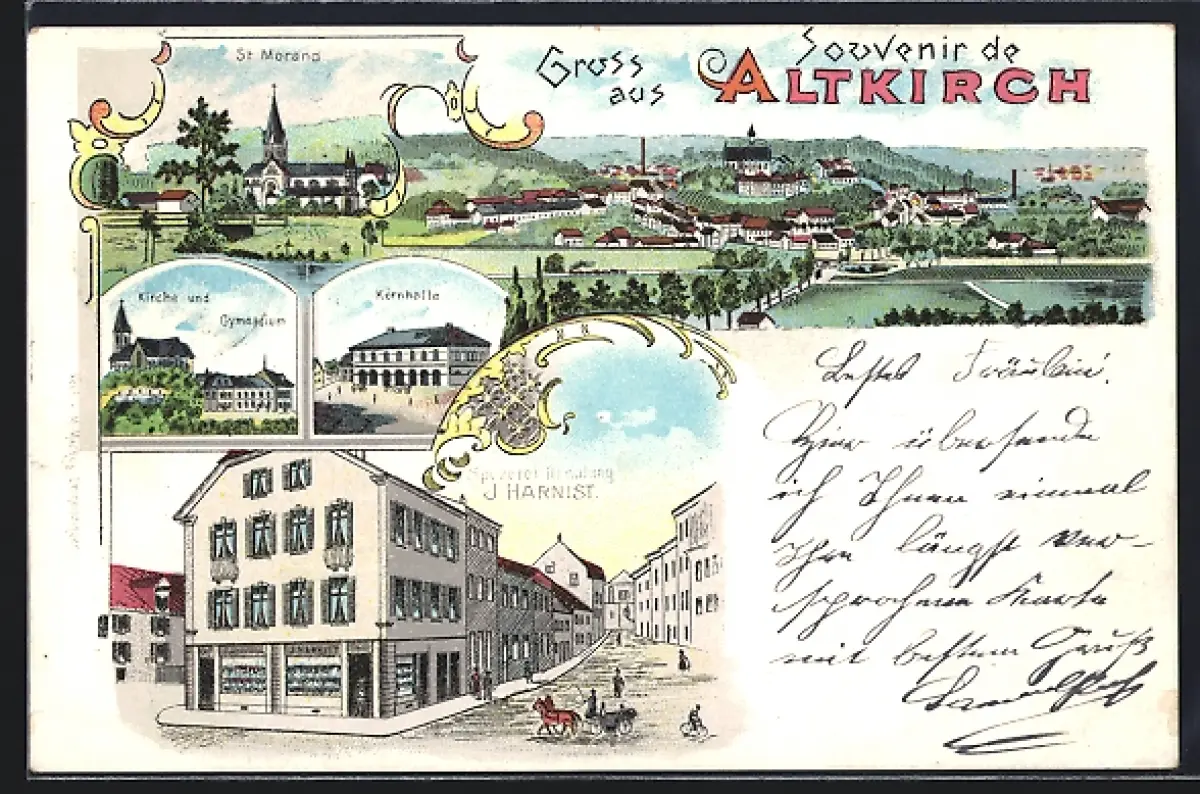 St Morand
Gruss aus
Souvenir de
ALTKIRCH
Kirche und
Gymnasium
Kornhalle
Spezerei Handlung
J. HARNIST.
J. HARNIST
Bestes Fräulein!
Hier übersende
ich Ihnen einmal
Ihre längst ver-
sprochene Karte
mit bestem Gruß